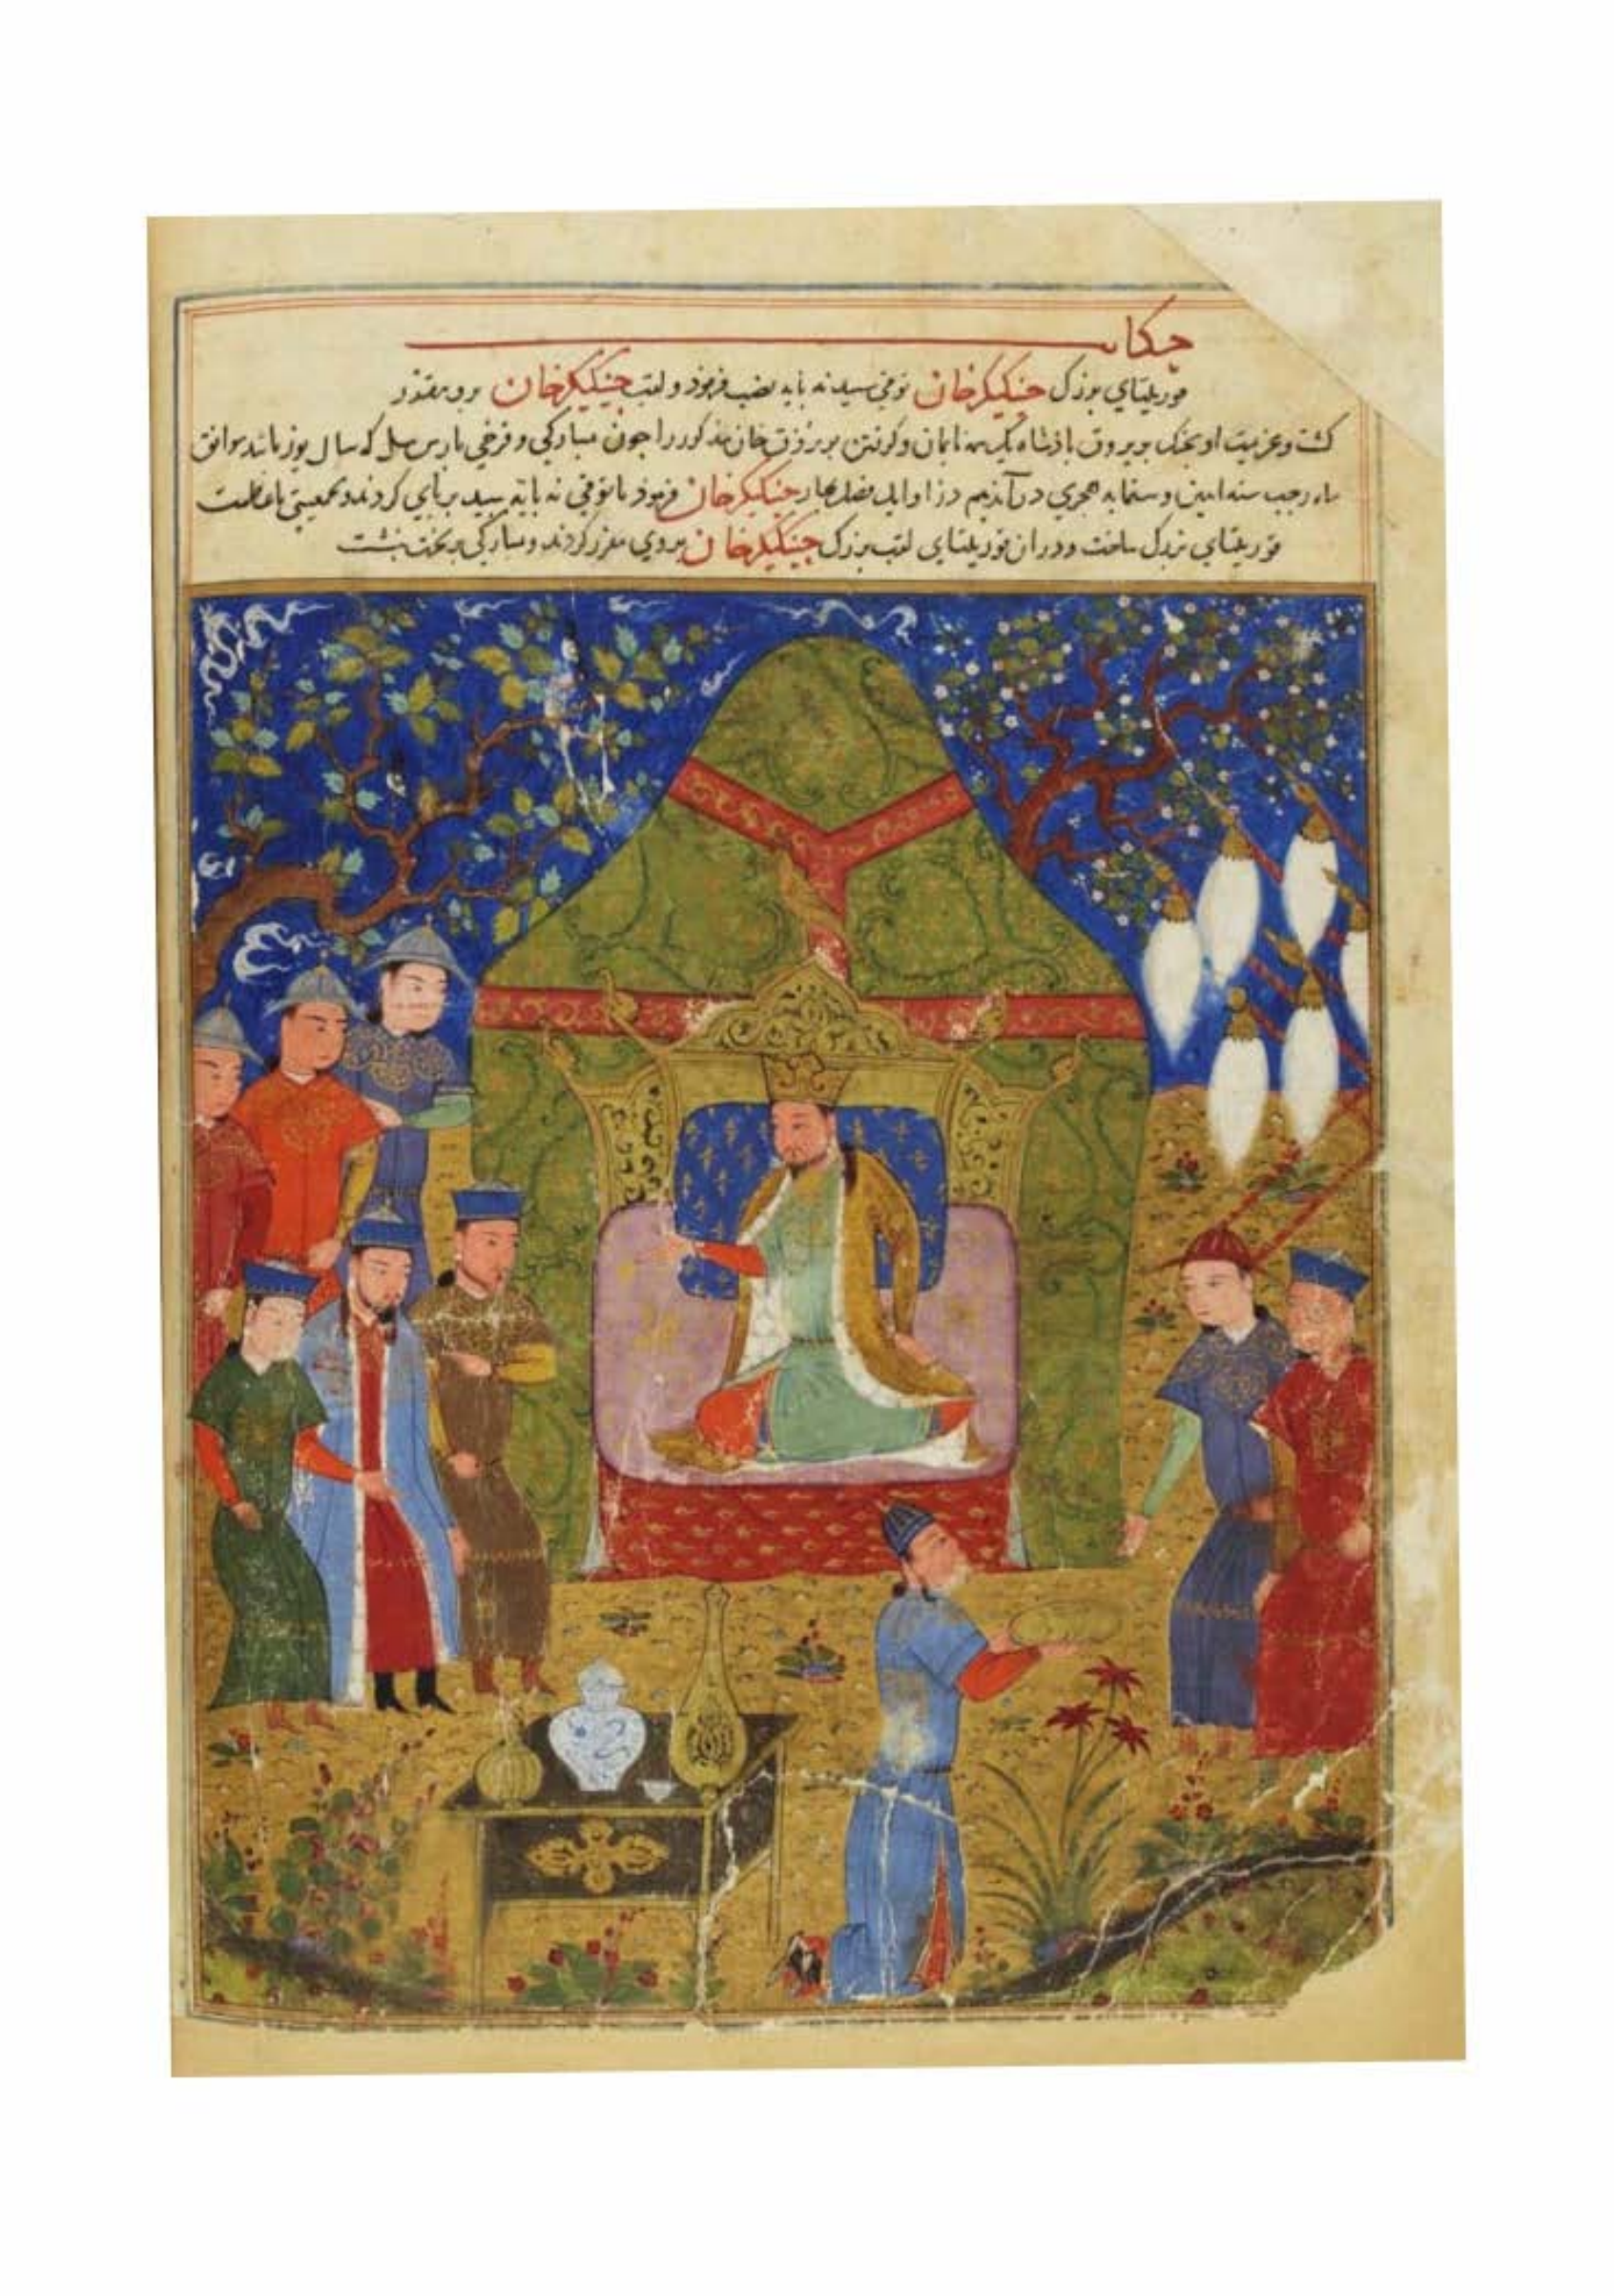 حکایت
قوریلتای بزرگ جینککیزخان توقی سپید نه پایه نصب فرمود و لقب جینککیزخان برو مقرر
گشت و عزیمت او بجنک بویروق پادشاه نایمان و گرفتن بویروق خان مذکور را چون مبارکی و فرخی بارس ییل که سال یوز باشد موافق
ماه رجب سنه اثنین و ستمایه هجری درآمد هم در اوایل فصل بهار جینککیزخان فرمود تا توقی نه پایه سپید برپای کردند و بجمعیتی باعظمت
قوریلتای بزرگ ساخت و دران قوریلتای لقب بزرگ جینککیزخان بروی مقرر کردند و مبارکی بر تخت نشست